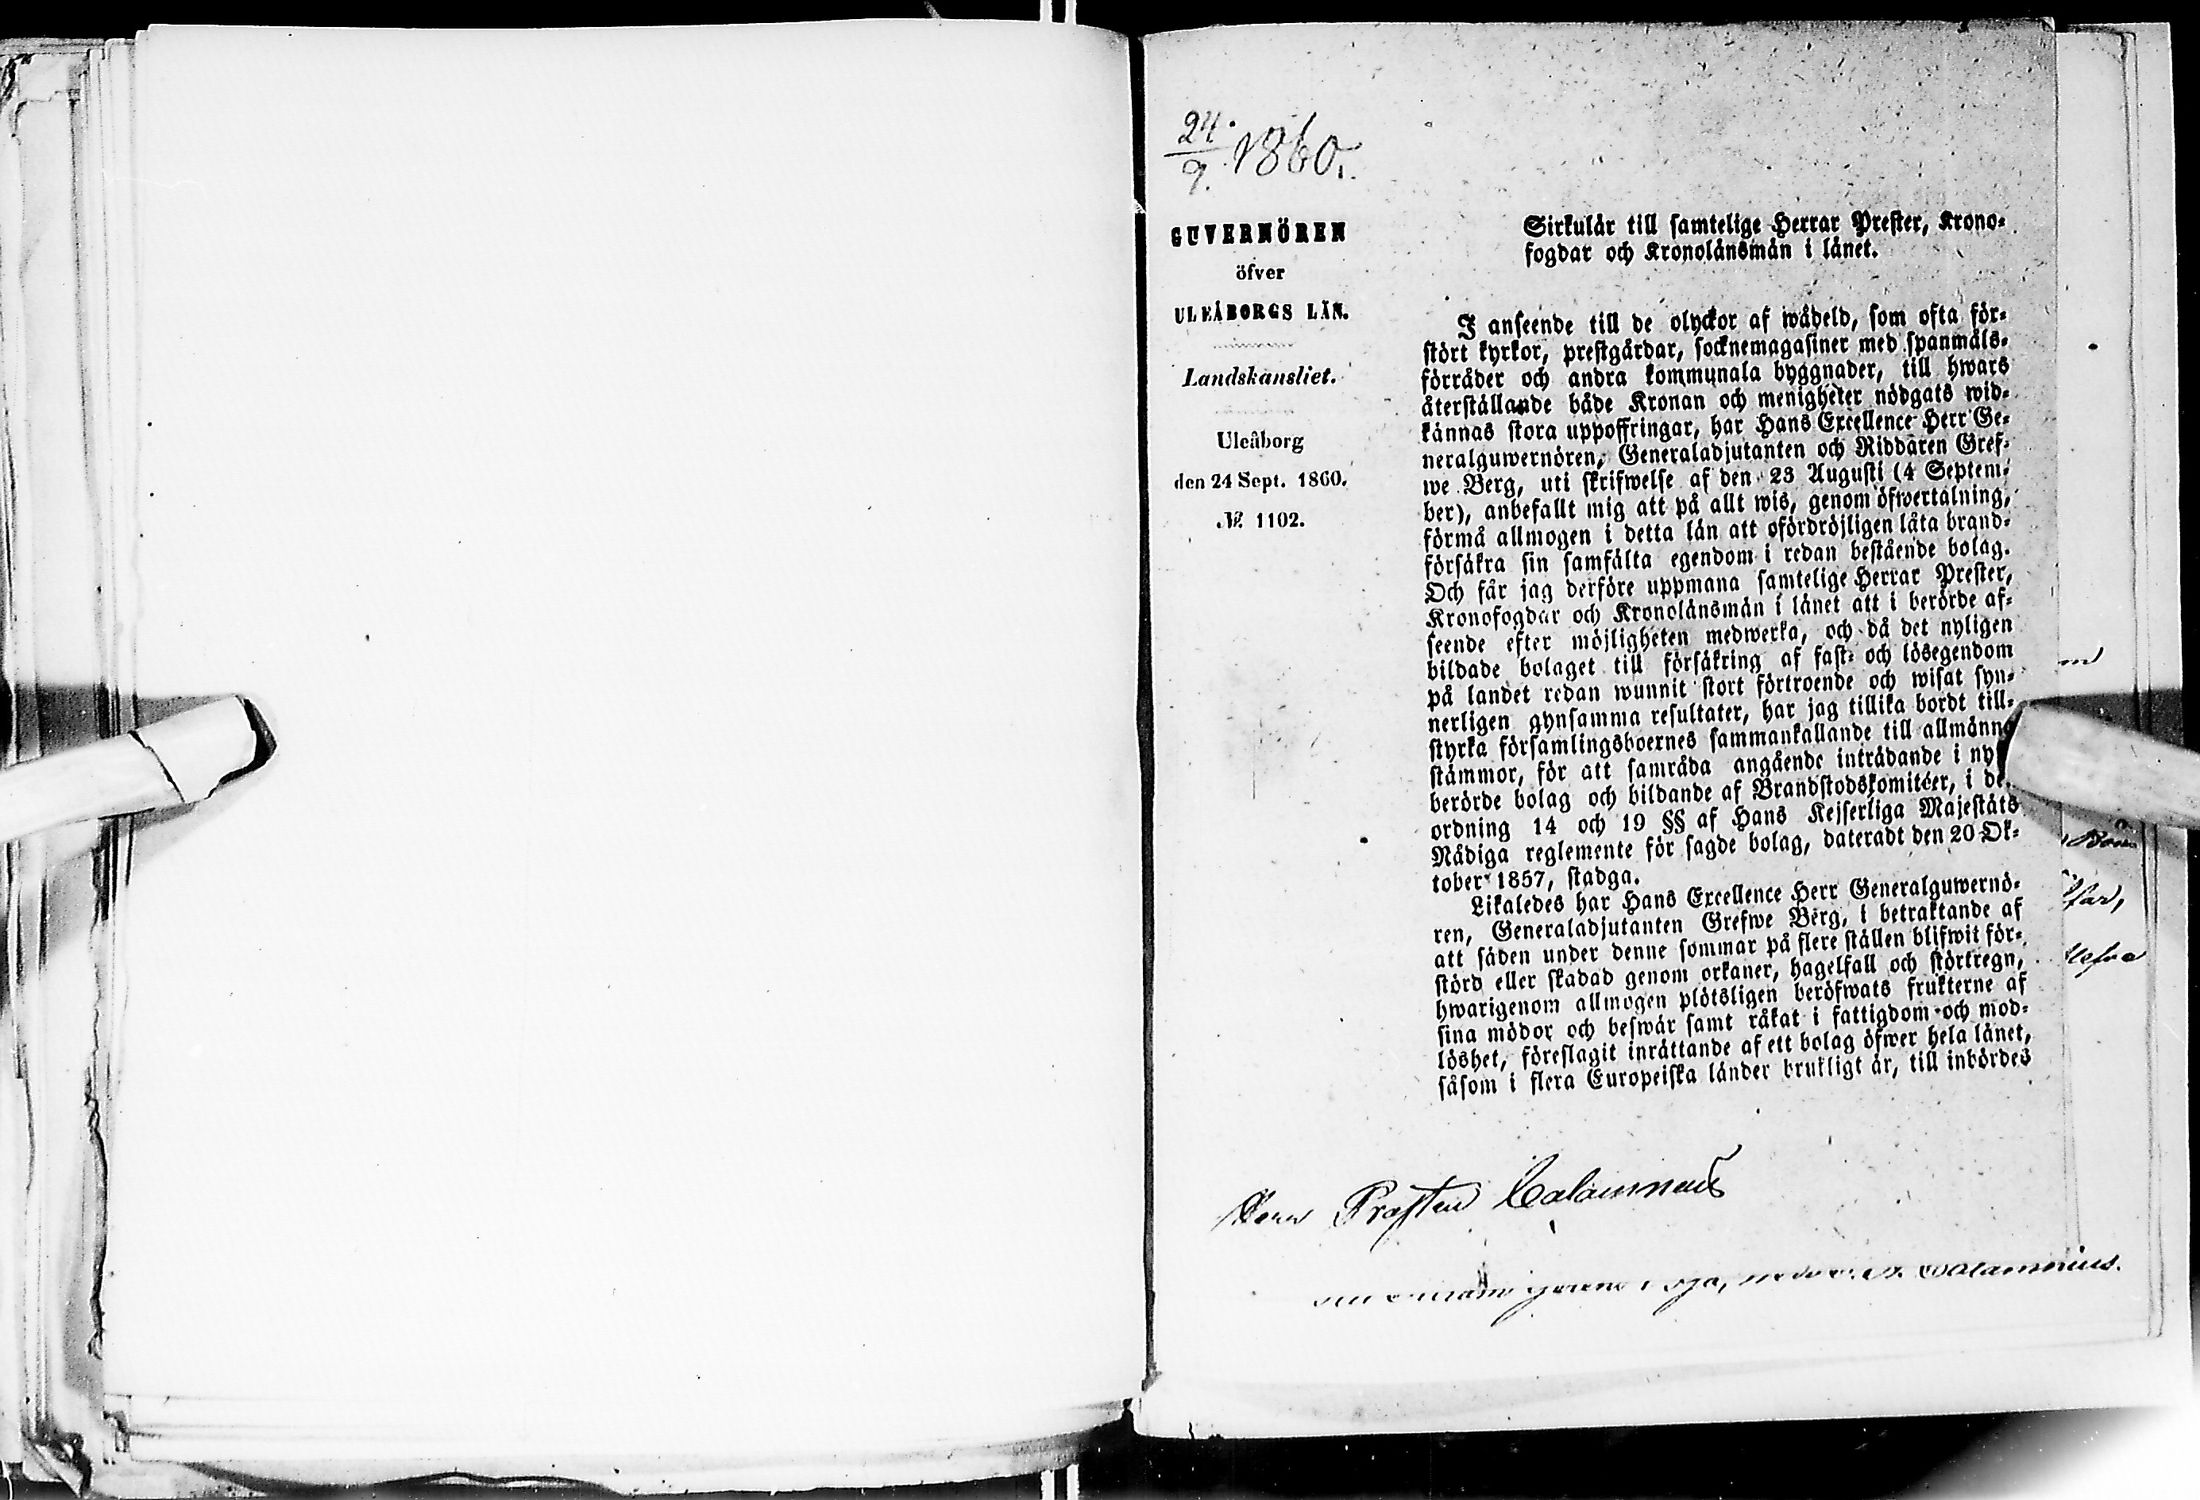 24. 1860.
9.
GUVERNÖREN
öfver
ULEÅBORGS LÄN.
Landskansliet.
Uleåborg
den 24 Sept. 1860.
№ 1102.
Sirkulär till samtelige Herrar Prester, Krono-
fogdar och Kronolänsmän i länet.
I anseende till de olyckor af wådeld, som ofta för-
stört kyrkor, prestgårdar, socknemagasiner med spanmåls-
förråder och andra kommunala byggnader, till hwars
återställande både Kronan och menigheter nödgats wid-
kännas stora uppoffringar, har Hans Excellence Herr Ge-
neralguwernören, Generaladjutanten och Riddaren Gref-
we Berg, uti skrifwelse af den 23 Augusti (4 Septem-
ber), anbefallt mig att på allt wis, genom öfwertalning,
förmå allmogen i detta län att ofördröjligen låta brand-
försäkra sin samfälta egendom i redan bestående bolag.
Och får jag derföre uppmana samtelige Herrar Prester,
Kronofogdar och Kronolänsmän i länet att i berörde af-
seende efter möjligheten medwerka, och då det nyligen
bildade bolaget till försäkring af fast- och lösegendom
på landet redan wunnit stort förtroende och wisat syn-
nerligen gynsamma resultater, har jag tillika bordt till-
styrka församlingsboernes sammankallande till allmänna
stämmor, för att samråda angående inträdande i ny
berörde bolag och bildande af Brandstodskomitéer, i de
ordning 14 och 19 §§ af Hans Kejserliga Majestäts
Nådiga reglemente för sagde bolag, dateradt den 20 Ok-
tober 1857, stadga.
Likaledes har Hans Excellence Herr Generalguwernö-
ren, Generaladjutanten Grefwe Berg, i betraktande af
att säden under denne sommar på flere ställen blifwit för-
störd eller skadad genom orkaner, hagelfall och störtregn,
hwarigenom allmogen plötsligen beröfwats frukterne af
sina mödor och beswär samt råkat i fattigdom och mod-
löshet, föreslagit inrättande af ett bolag öfwer hela länet,
såsom i flera Europeiska länder brukligt är, till inbördes
Calamnius
Calamnius.